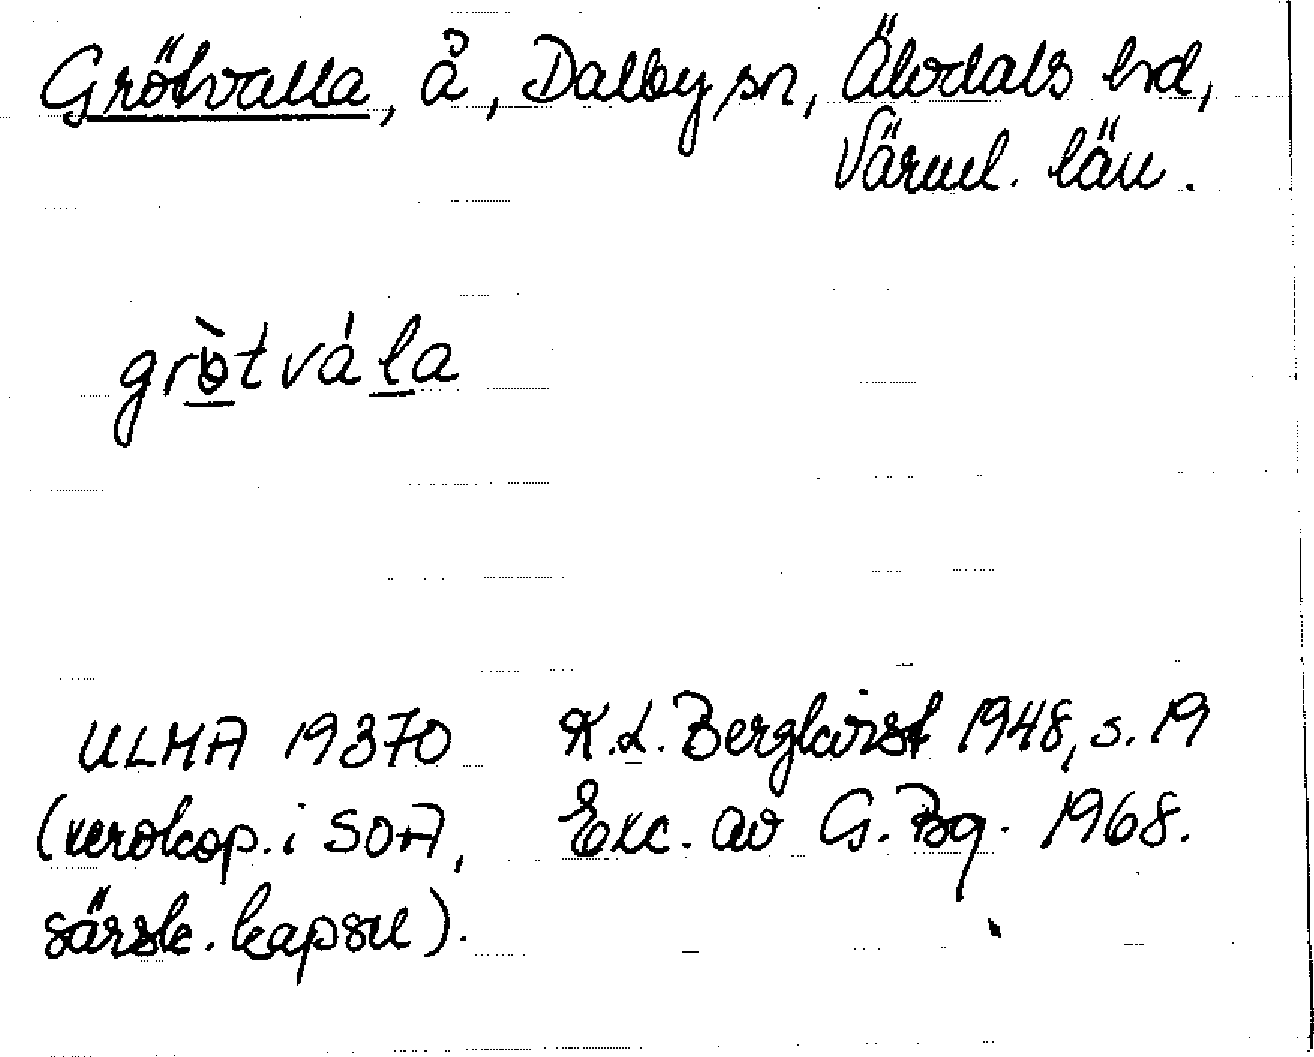 Grötvalla, å, Dalby sn, Älvdals hd,
Värml. län.
grö̀tvála
ULMA 19370 K.L. Bergkvist 1948, s. 19
(xerokop. i SOA, Exc. av G. Bq. 1968.
särsk. kapsel).